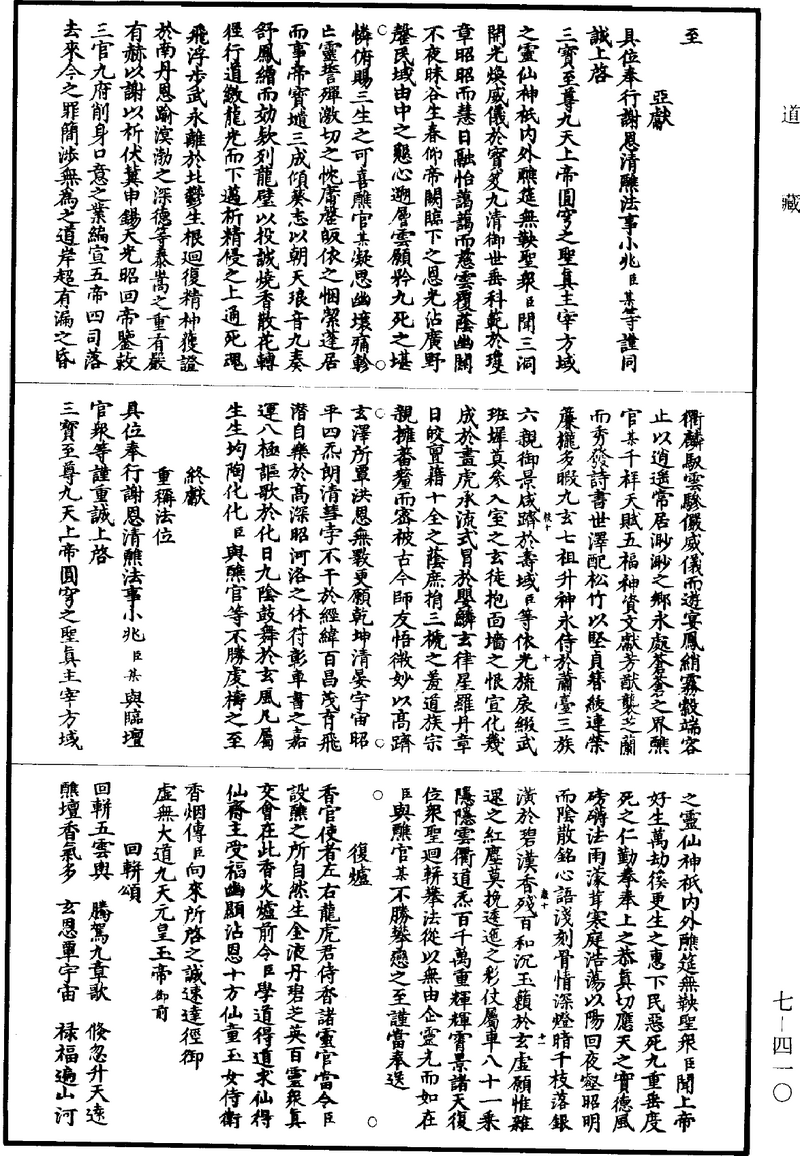 道藏
至
亞獻
具位奉行謝恩清醮法事小兆臣某等謹同
誠上啓
三寶至尊九天上帝圓穹之聖真主宰方域
之靈仙神祇內外醮筵無鞅聖衆臣聞三洞
開光煥威儀於寶笈九清御世垂科範於瓊
章昭昭而慧日融怡藹藹而慈雲覆蔭幽關
不夜昧谷生春仰帝闕臨下之恩光沾廣野
罄民域由中之懇心遡屬雲願矜九死之堪
憐俯賜三生之可喜醮官某凝思幽壤痛軫
亡靈誓殫激切之忱膚罄皈依之悃潔蓬居
而事帝寶墖三成傾葵志以朝天琅音九奏
舒鳳繒而効欵列龍璧以投誠燒香散花轉
徑行道繳龍光而下邁析精祲之上通死魂
飛浮步武永離於北鬱生根迴復精神獲證
於南丹恩踰溟渤之深德等泰嵩之重有嚴
有赫以謝以祈伏冀申錫天光昭回帝鑒敕
三官九府削身口意之業編宣五帝四司落
去來今之罪簡涉無為之道岸超有漏之昏
衢麟馭雲驂儼威儀而遊宴鳳綃霧縠端容
止以逍遙常居渺渺之鄉永處蒼蒼之界醮
官某千祥天賦五福神資文獻芳猷襲芝蘭
而秀發詩書世澤配松竹以堅貞簪紱連榮
簾櫳多暇九玄七祖升神永侍於蕭臺三族
六親御景咸躋於壽域臣等依光旒扆綴武
班墀莫參入室之玄徒抱面墻之恨宣化幾
成於畫虎承流式冒於嬰鱗玄律星羅丹章
日皎亶藉十全之蔭庶揜三檖之羞道族宗
親擁蕃釐而密被古今師友悟微妙以高躋
玄澤所單洪恩無斁更願乾坤清晏宇宙昭
平四炁朗清彗孛不干於經緯百昌茂育飛
潛自樂於高深昭河洛之休符彰車書之嘉
運八極謳歌於化日九陰鼓舞於玄風凡屬
生生均陶化化臣與醮官等不勝虔禱之至
終獻
重稱法位
具位奉行謝恩清醮法事小兆臣某與臨壇
官衆等謹重誠上啓
三寶至尊九天上帝圓穹之聖真主宰方域
之靈仙神祇內外醮筵無鞅聖衆臣聞上帝
好生萬劫篌更生之惠下民惡死九重垂度
死之仁勤拳奉上之恭真切應天之實德風
磅礴法雨濛茸寒庭浩蕩以陽回夜壑昭明
而陰散銘心語淺刻骨情深燈暗千枝落銀
潢於碧漢香殘百和沉玉籟於玄虛願惟難
還之紅塵莫挽逶迤之彩仗屬車八十一乘
隱隱雲衢道炁百千萬重輝輝霄景諸天復
位衆聖迴軿拳法從以無由企靈光而如在
臣與醮官某不勝攀戀之至謹當奉送
復爐
香官使者左右龍虎君侍香諸靈官當令臣
設醮之所自然生金液丹碧芝英百靈衆真
交會在此香火爐前令臣學道得道求仙得
仙齋主受福幽顯沾恩十方仙童玉女侍衛
香烟傳臣向來所啓之誠速達徑御
虛無大道九天元皇玉帝御前
回軿頌
回軿五雲輿 騰駕九章歌 倏忽升天遠
醮壇香氣多 玄恩單宇宙 祿福遍山河
七—四一〇